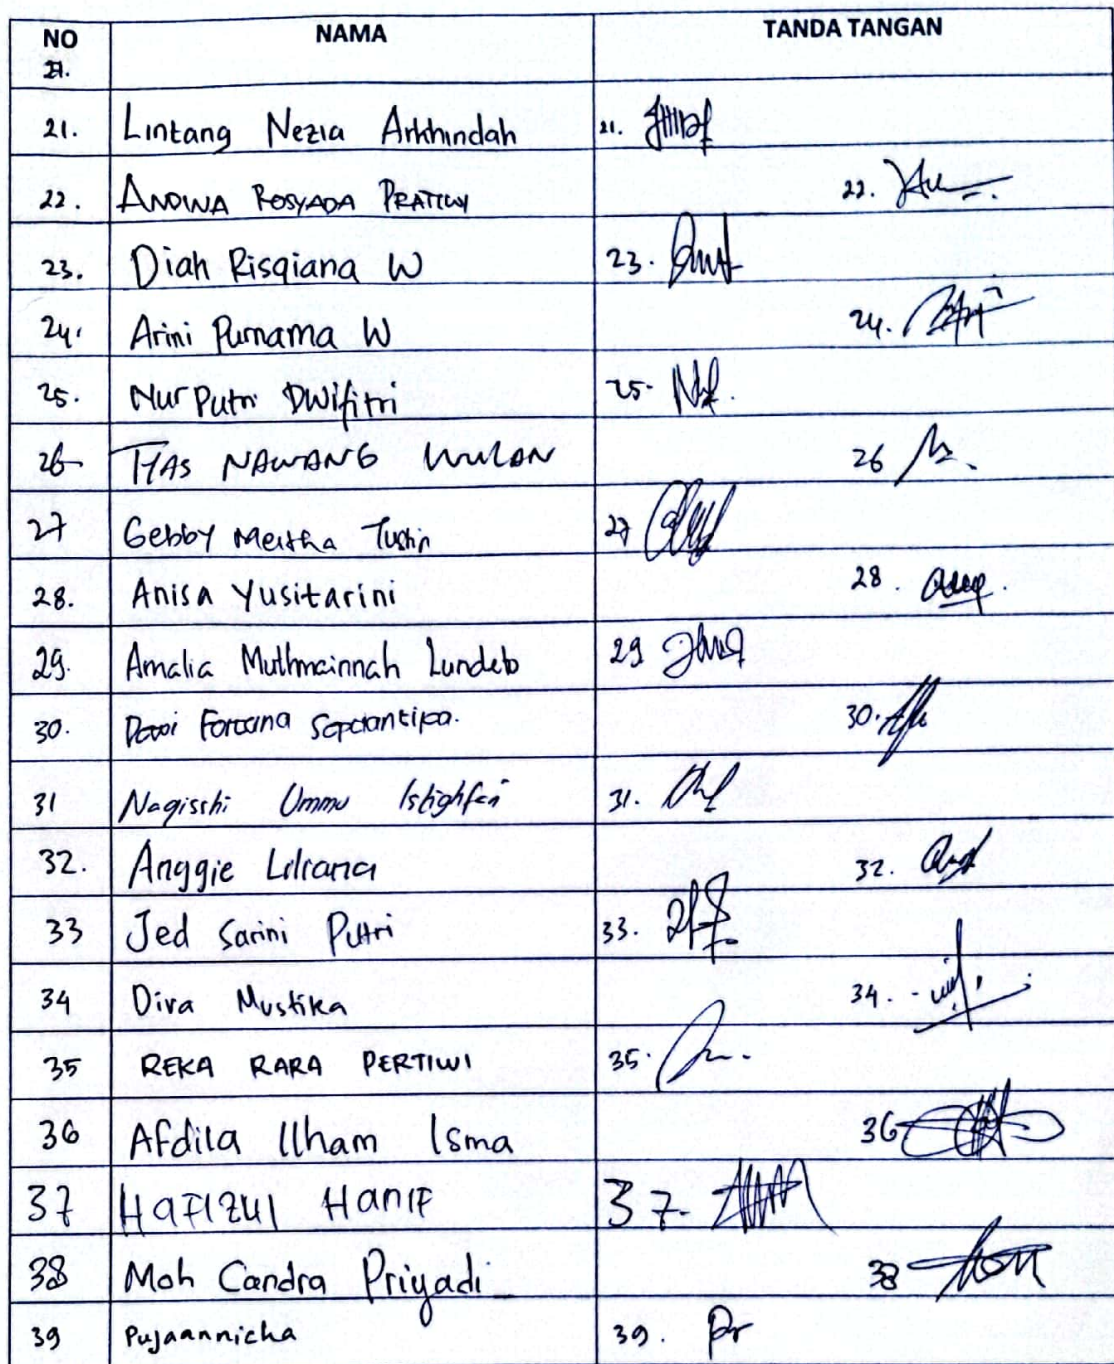 NO NAMA TANDA TANGAN
21.
21. Lintang Nezia Arkhindah 21.
22. ANDINA ROSYADA PRATIWI 22.
23. Diah Risqiana W 23.
24. Arini Purnama W 24.
25. Nur Putri Dwifitri 25.
26 TYAS NAWANG WULAN 26
27 Gebby Meitha Tustin 27
28. Anisa Yusitarini 28.
29. Amalia Muthmainnah Lundeto 29
30. Dewi Fortuna 30.
31 Nagisshi Ummu Istighfari 31.
32. Anggie Liliana 32.
33 Jed Sarini Putri 33.
34 Diva Mustika 34.
35 REKA RARA PERTIWI 35.
36 Afdila Ilham Isma 36
37 HAFIZUl HaniF 37.
38 Moh Candra Priyadi 38
39 Pujaannicha 39.